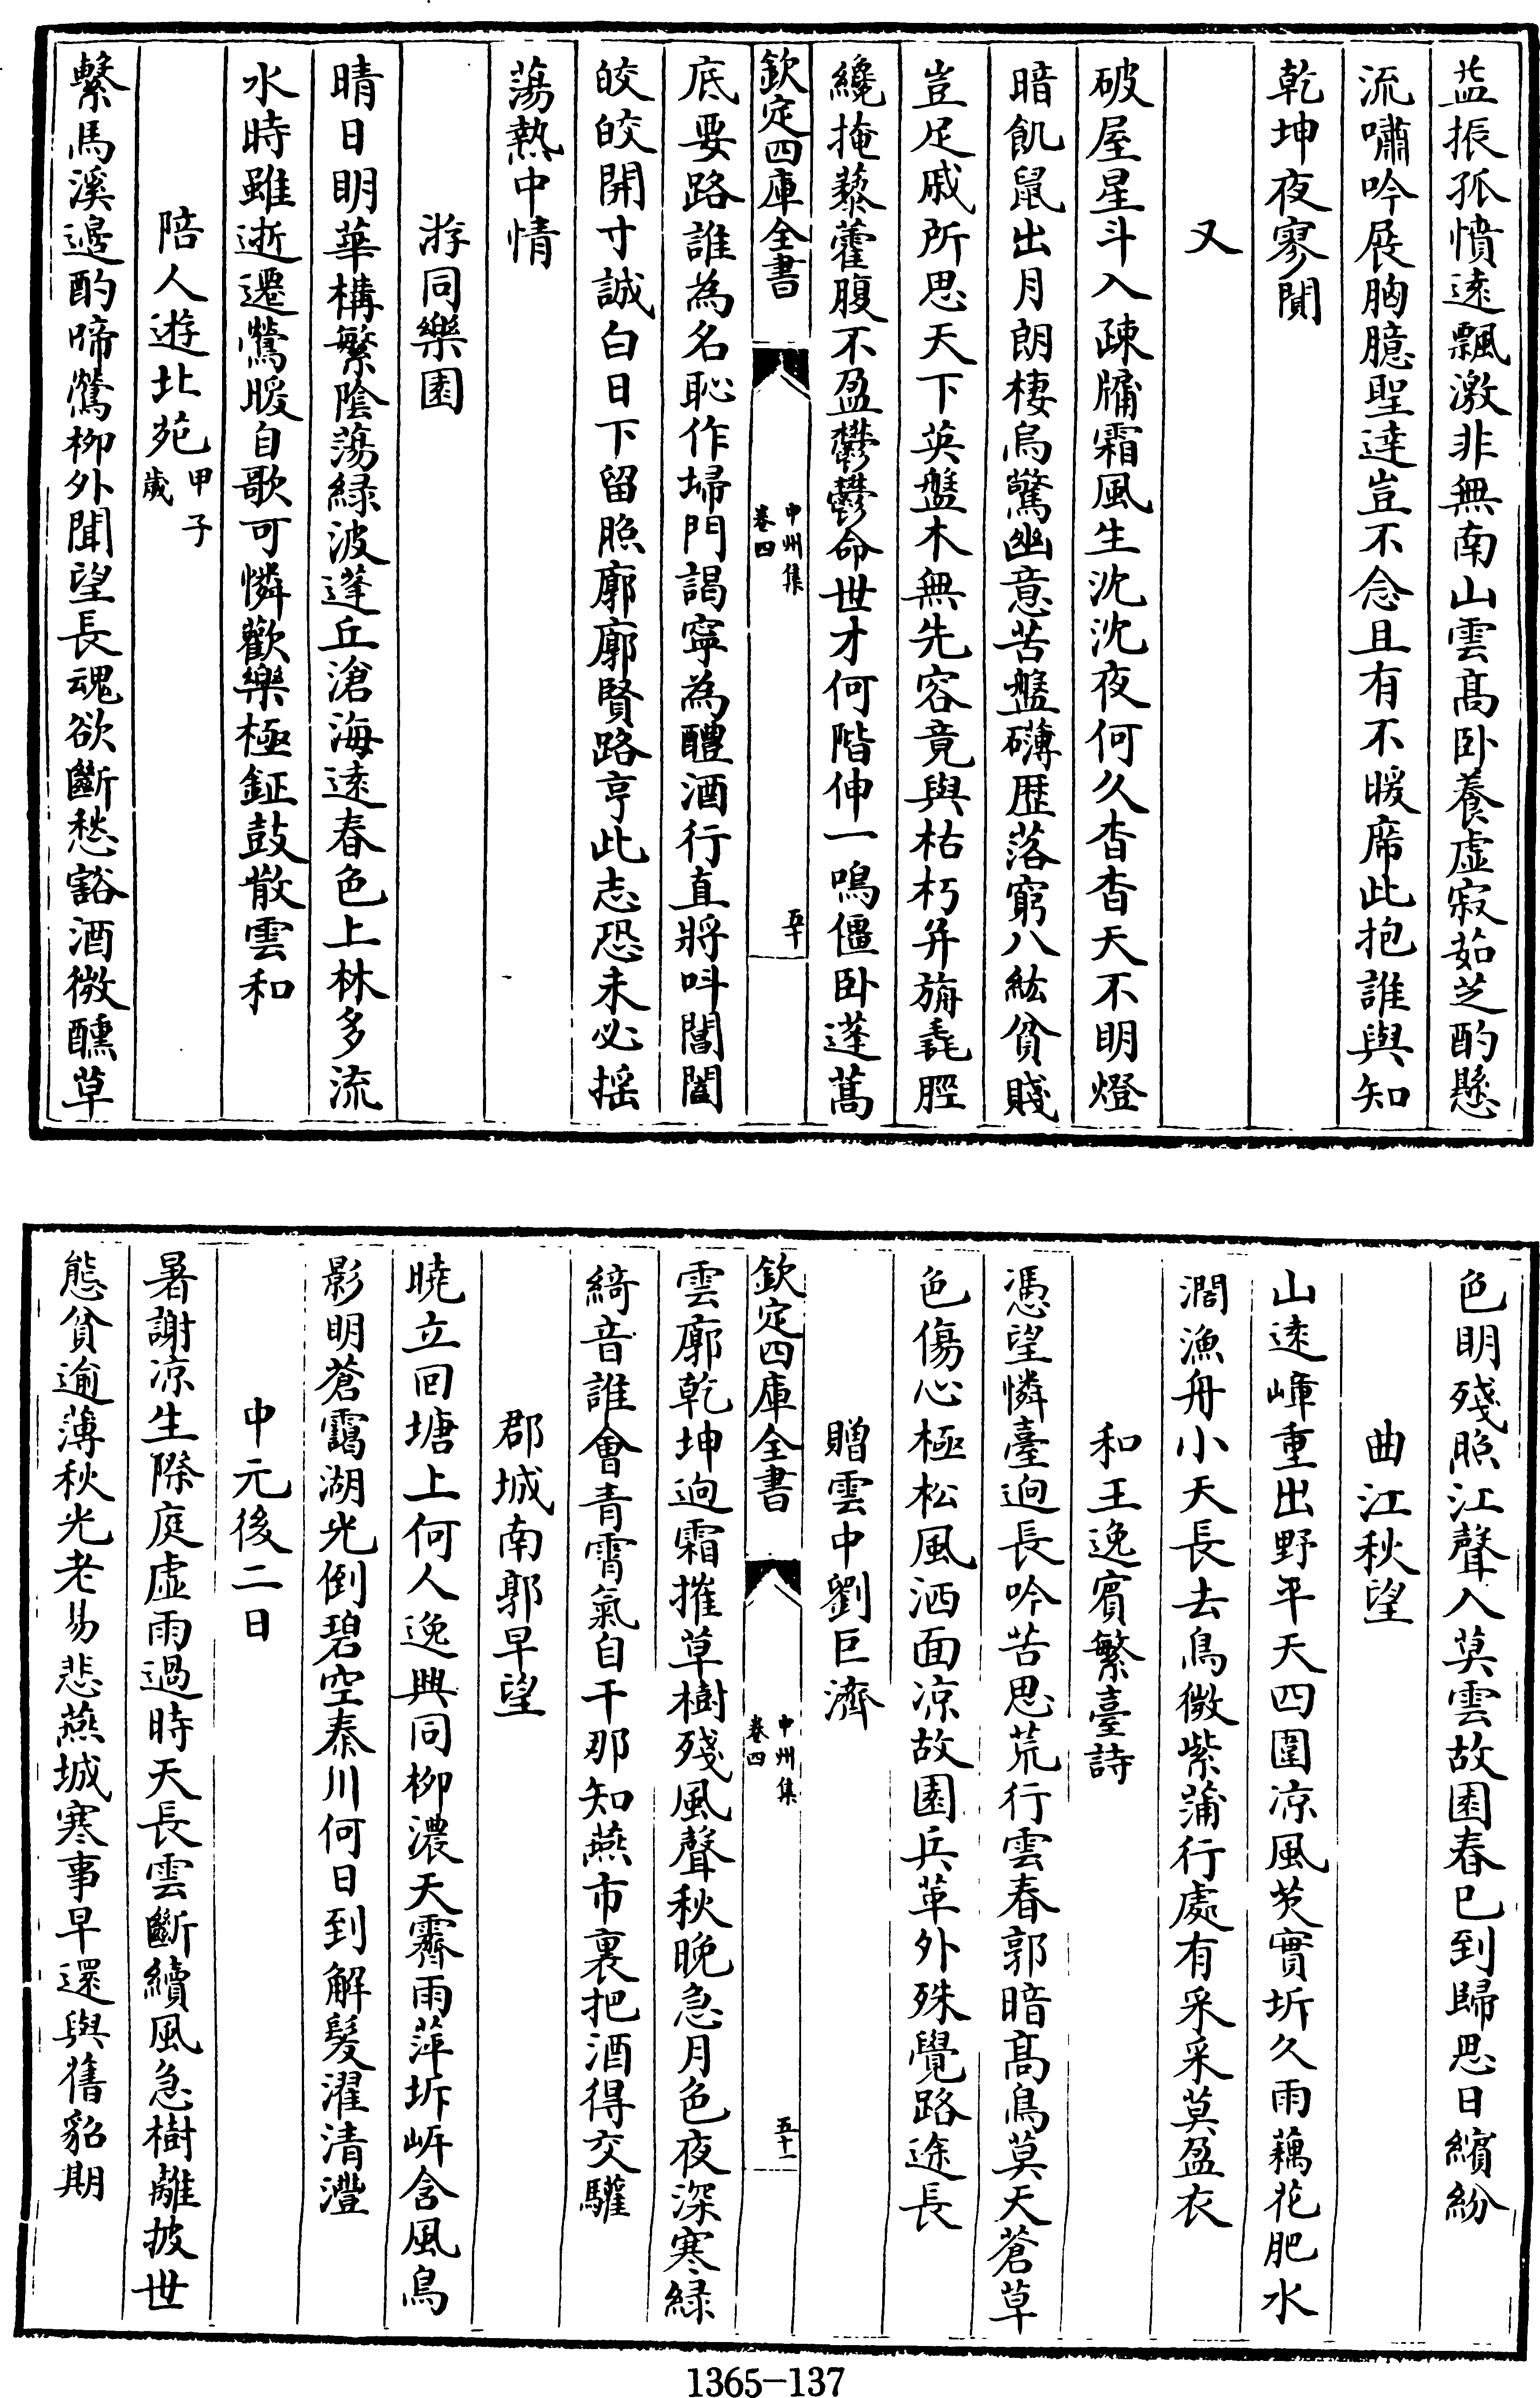 葢振孤憤遠飄激非無南山雲髙卧養虛寂茹芝酌懸
流嘯吟展胸臆聖逹豈不念且有不暖席此抱誰與知
乾坤夜寥闃
又
破屋星斗入疎牖霜風生沈沈夜何久杳杳天不明燈
暗飢鼠出月朗棲烏驚幽意苦盤礴歴落窮八紘貧賤
豈足戚所思天下英盤木無先容竟與枯朽并旃毳脛
纔掩藜藿腹不盈鬱鬱命世才何階伸一鳴僵卧蓬蒿
欽定四庫全書
中州集
卷四
五十
底要路誰為名恥作埽門謁寧為醴酒行直將呌閶闔
皎皎開寸誠白日下留照廓廓賢路亨此志恐未必揺
蕩熱中情
游同樂園
晴日明華構繁陰蕩緑波蓬丘滄海逺春色上林多流
水時雖逝遷鶯暖自歌可憐歡樂極鉦鼓散雲和
陪人遊北苑甲子
歲
繫馬溪邊酌啼鶯柳外聞望長魂欲斷愁豁酒微醺草
色明殘照江聲入莫雲故園春已到歸思日繽紛
曲江秋望
山逺嶂重出野平天四圍凉風芡實坼久雨藕花肥水
濶漁舟小天長去鳥微紫蒲行處有采采莫盈衣
和王逸賓繁臺詩
憑望憐臺迥長吟苦思荒行雲春郭暗髙鳥莫天蒼草
色傷心極松風洒面凉故園兵革外殊覺路途長
贈雲中劉巨濟
欽定四庫全書
中州集
卷四
五十一
雲廓乾坤迥霜摧草樹殘風聲秋晚急月色夜深寒緑
綺音誰會青霄氣自干那知燕市裏把酒得交驩
郡城南郭早望
曉立回塘上何人逸興同柳濃天霽雨萍坼岍含風鳥
影明蒼靄湖光倒碧空秦川何日到解髮濯清灃
中元後二日
暑謝凉生際庭虛雨過時天長雲斷續風急樹離披世
態貧逾薄秋光老易悲燕城寒事早還與舊貂期
1365-137